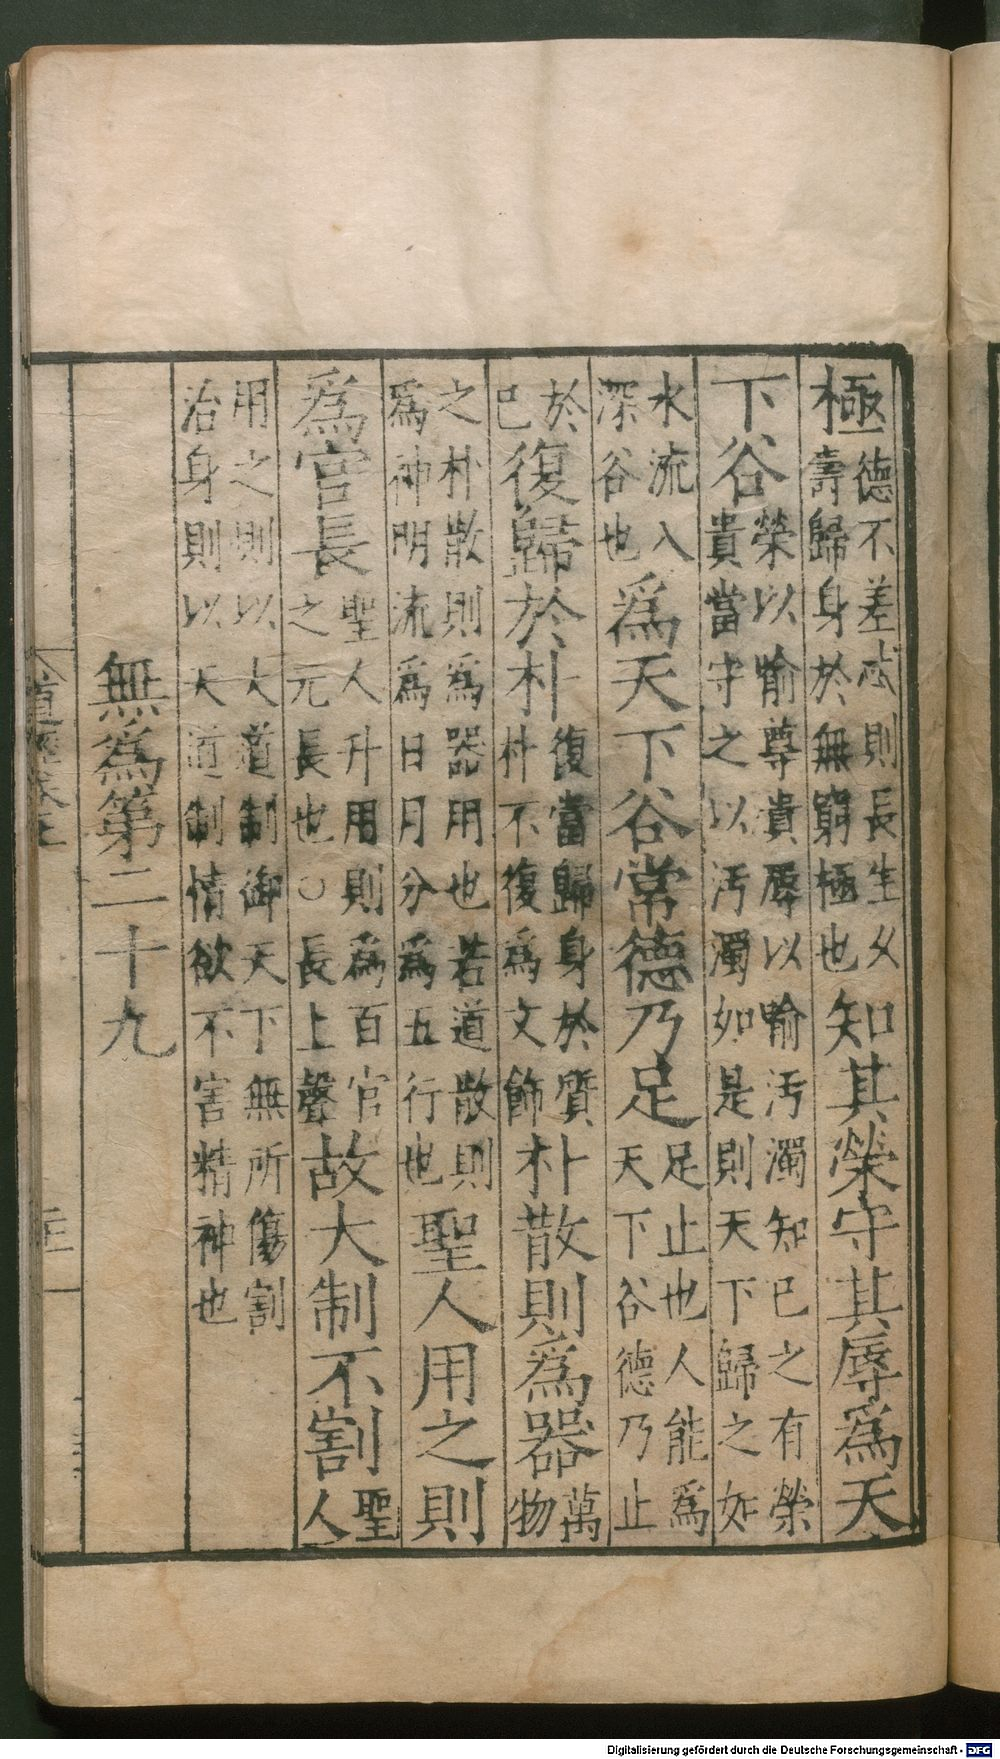 極德不差忒則長生久壽歸身於無窮極也知其榮守其辱爲天
下谷榮以喻尊貴辱以喻汚濁知已之有榮貴當守之以汚濁如是則天下歸之如
水流入深谷也爲天下谷常德乃足足止也人能爲天下谷德乃止
於已復歸於朴復當歸身於質朴不復爲文飾朴散則爲器萬物
之朴散則爲器用也若道散則爲神明流爲日月分爲五行也聖人用之則
爲官長聖人升用則爲百官之元長也○長上聲故大制不割聖人
用之則以大道制御天下無所傷割治身則以天道制情欲不害精神也
無爲第二十九
道經卷上
Digitalisierung gefördert durch die Deutsche Forschungsgemeinschaft - DFG